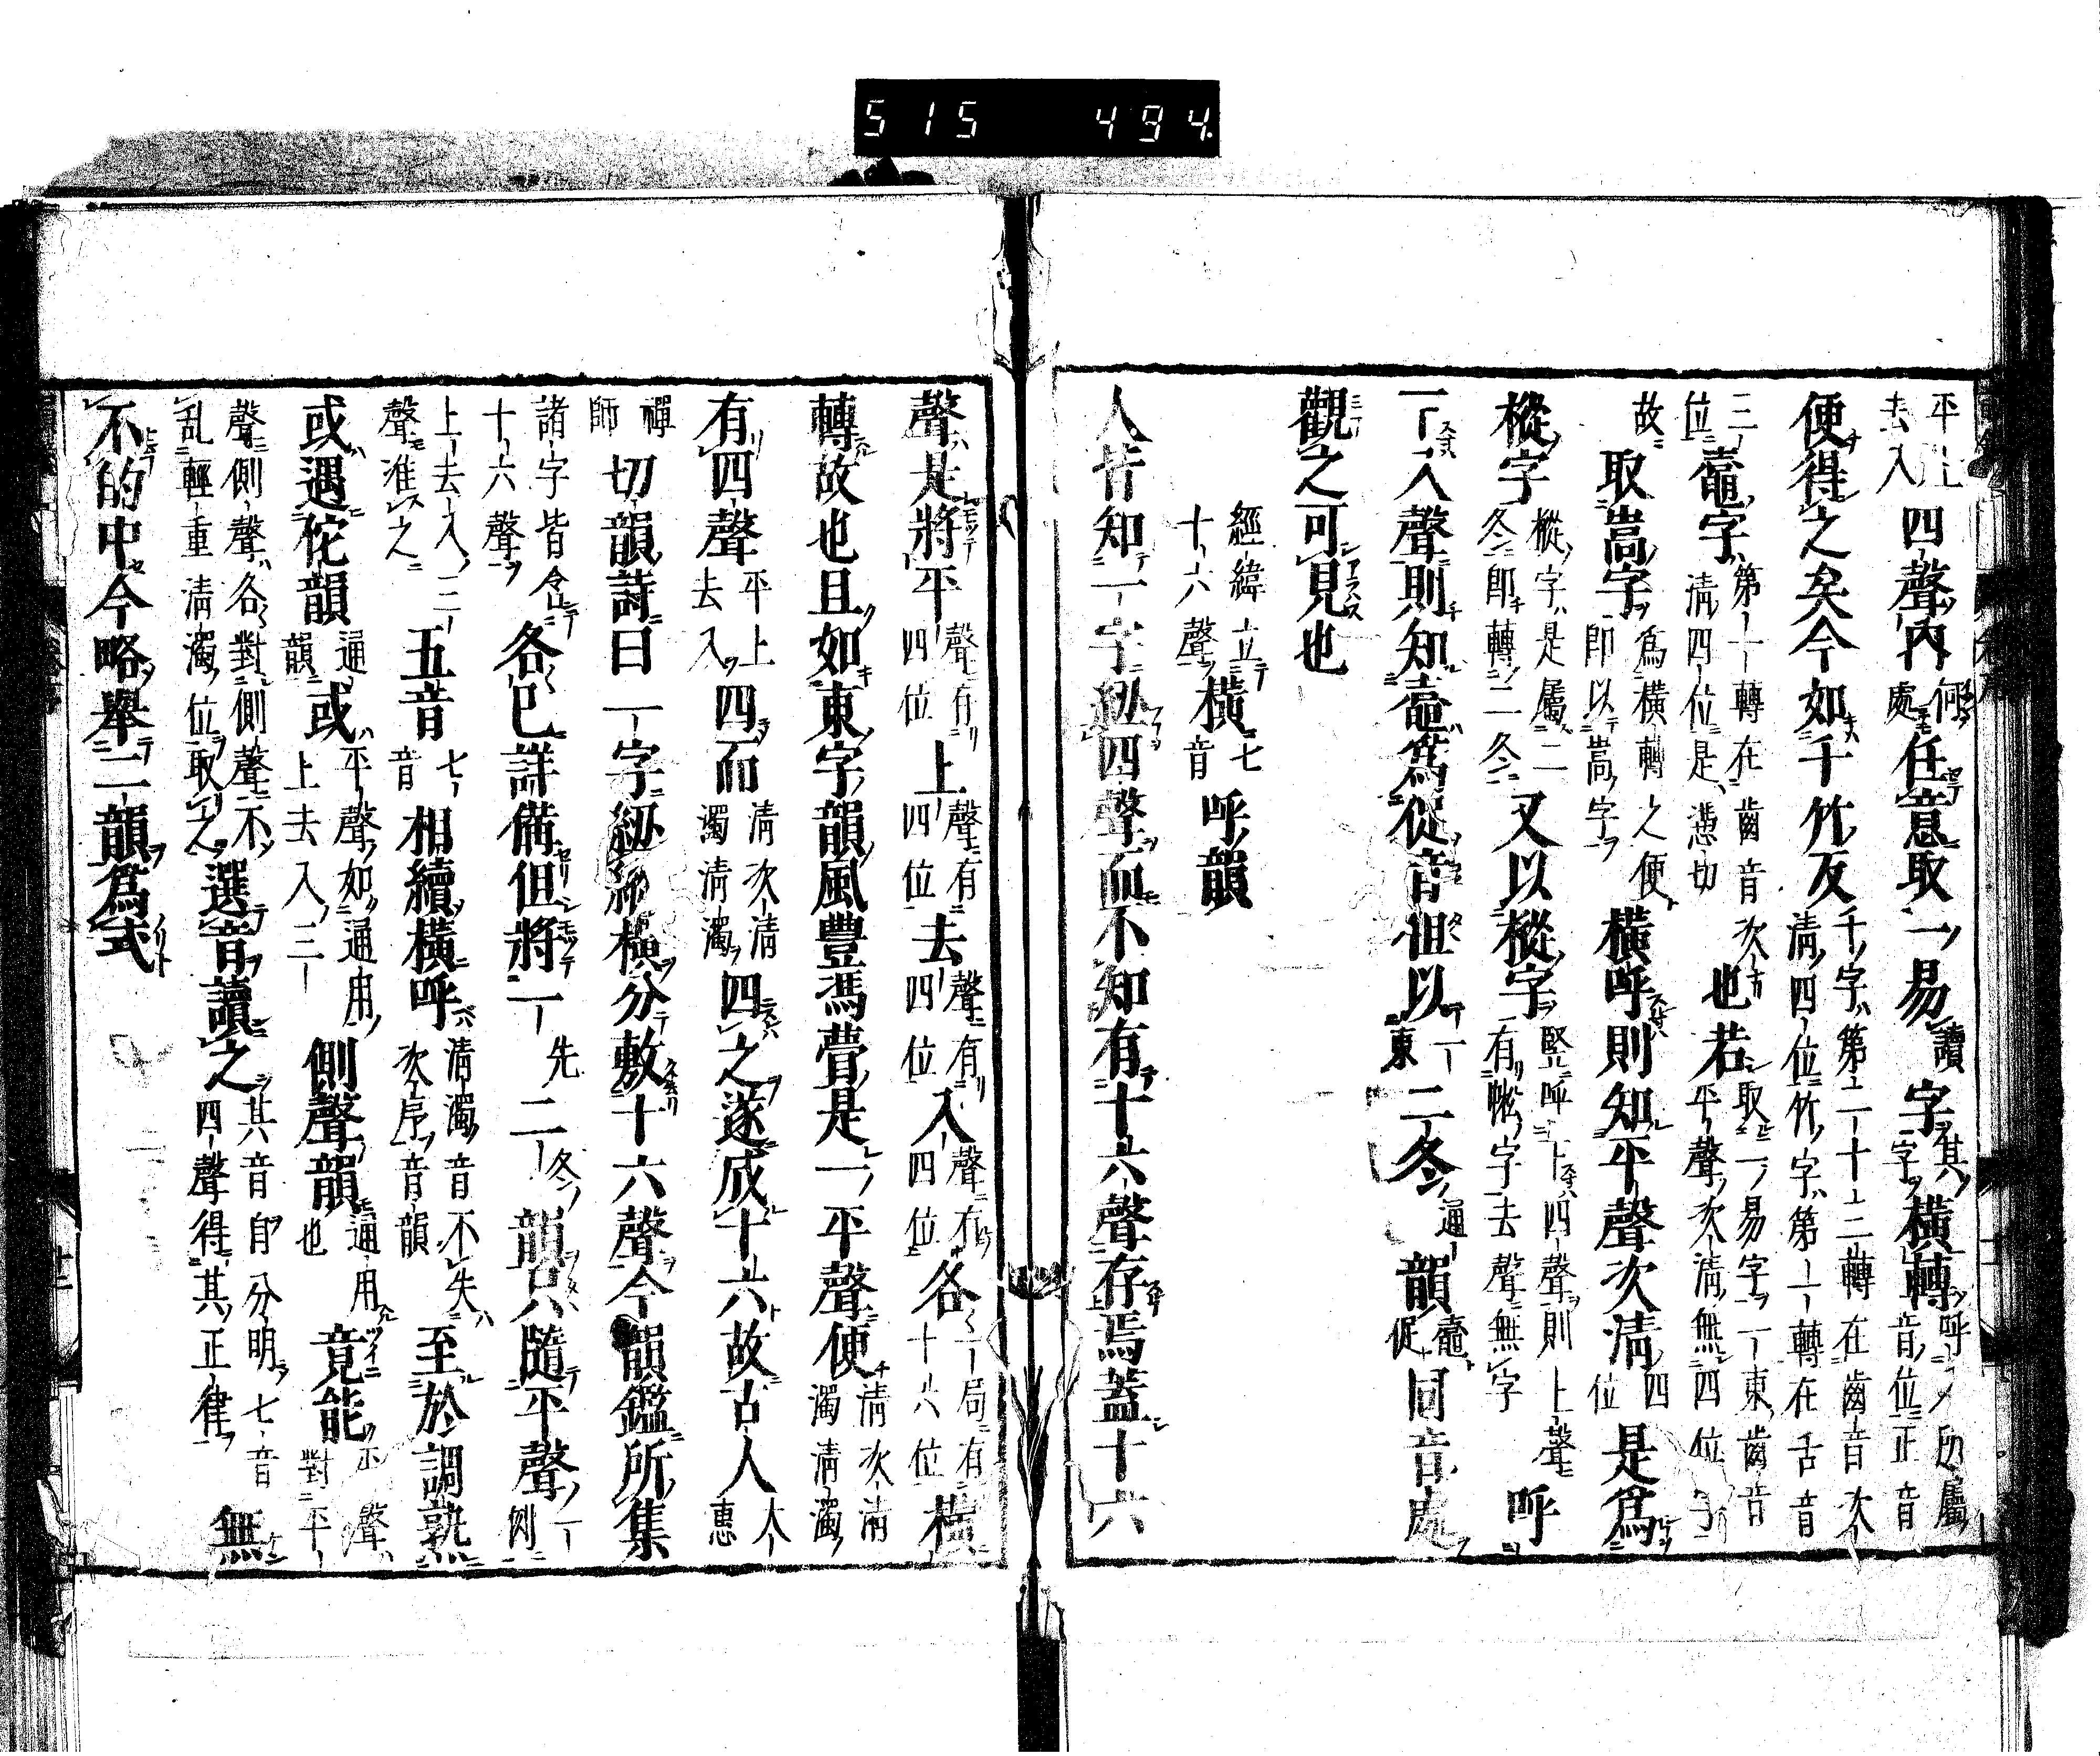 515 494.
平上去入四聲內何處任意取一易讀字其字橫轉呼ノ所屬音位正音
便得之矣今如千竹反千字第二十二轉在齒音次清四位竹字第一轉在舌音
三位𪔛字第十一轉在齒音次清四位是憑切也若取一易字一東齒音平聲次清無四位字
故取嵩字為橫轉之便即以嵩字橫呼則知平聲次清四位是為
樅字樅字是屬二冬即轉二冬又以樅字竪呼下四聲則上聲有㯶字去聲無字呼
一入聲則知𪔛為促音但以一東二冬通韻𪔛促同音處
觀之可見也
經緯立十六聲橫七音呼韻
人皆知一字紐四聲而不知有十六聲存焉蓋十六
聲是將平聲有四位上聲有四位去聲有四位入聲有四位各一局有十六位橫
轉故也且如東字韻風豐馮瞢是一平聲便清次清濁清濁
有四聲平上去入四而清次清濁清濁四之遂成十六故古人大惠
禪師切韻詩曰一字紐縱橫分敷十六聲今韻鑑所集
諸字皆含十六聲各已詳備但將一先二冬韻只隨平聲一例
上去入三聲准之五音七音相續橫呼清濁音不失次序音韻至於調熟
或遇佗韻通韻或平聲如通用上去入三側聲韻通用也竟能正聲對平
聲側聲各對側聲不乱輕重清濁位取之選音讀之其音自分明七音四聲得其正律無
不的中今略舉二韻為式